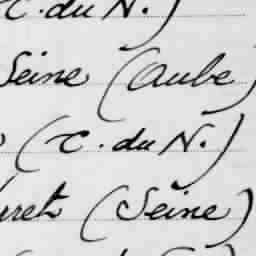 C. du N.)
Seine (Aube)
(C. du N.)
uret (Seine)